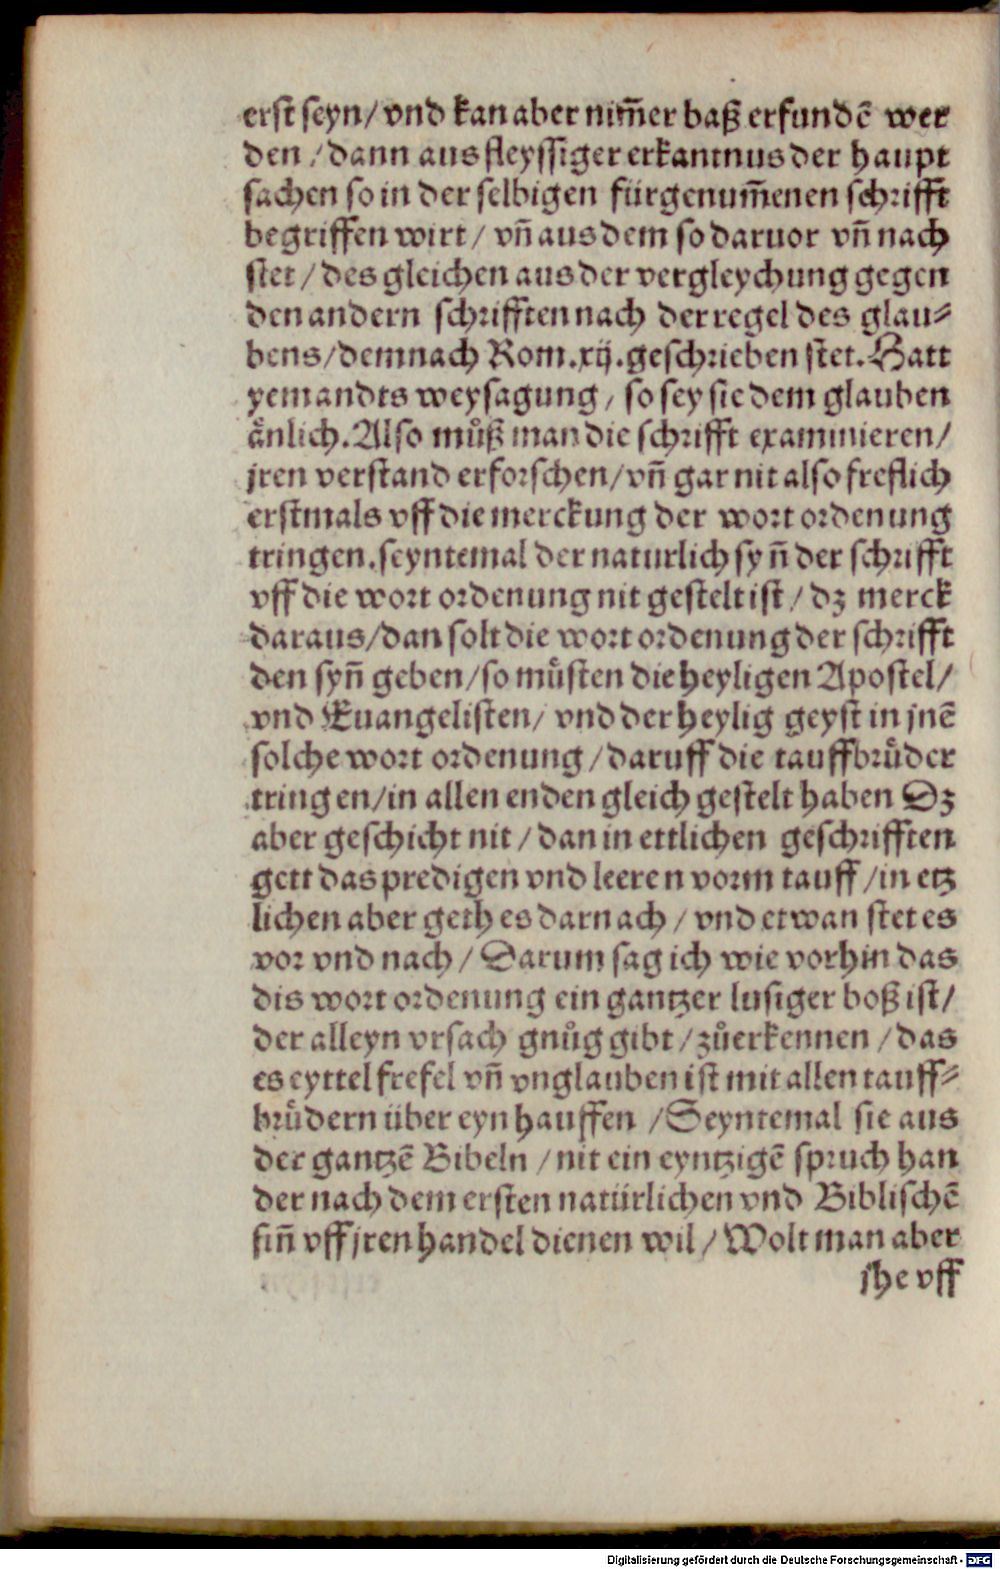 erst seyn/ vnd kan aber nim̄er baß erfundē wer
den / dann aus fleyssiger erkantnus der haupt
sachen so in der selbigen fürgenum̄enen schrifft
begriffen wirt / vn̄ aus dem so daruor vn̄ nach
stet / des gleichen aus der vergleychung gegen
den andern schrifften nach der regel des glau⸗
bens/demnach Rom.xij.geschrieben stet. Hatt
yemandts weysagung, so sey sie dem glauben
aͤnlich. Also muͦß man die schrifft examinieren/
jren verstand erforschen/vn̄ gar nit also freflich
erstmals vff die merckung der wort ordenung
tringen.seyntemal der naturlich syn̄ der schrifft
vff die wort ordenung nit gestelt ist / dz merck
daraus/dan solt die wort ordenung der schrifft
den syn̄ geben/so muͤsten die heyligen Apostel/
vnd Euangelisten/ vnd der heylig geyst in jnē
solche wort ordenung /daruff die tauffbruͤder
tringen/in allen enden gleich gestelt haben Dz
aber geschicht nit / dan in ettlichen geschrifften
gett das predigen vnd leeren vorm tauff /in etz
lichen aber geth es darnach / vnd etwan stet es
vor vnd nach / Darum sag ich wie vorhin das
dis wort ordenung ein gantzer lusiger boß ist/
der alleyn vrsach gnuͦg gibt /zuͦerkennen /das
es eyttel frefel vn̄ vnglauben ist mit allen tauff⸗
bruͤdern über eyn hauffen /Seyntemal sie aus
der gantzē Bibeln /nit ein eyntzigē spruch han
der nach dem ersten natürlichen vnd Biblischē
sin̄ vff jren handel dienen wil / Wolt man aber
jhe vff
Digitalisierung gefördert durch die Deutsche Forschungsgemeinschaft - DFG